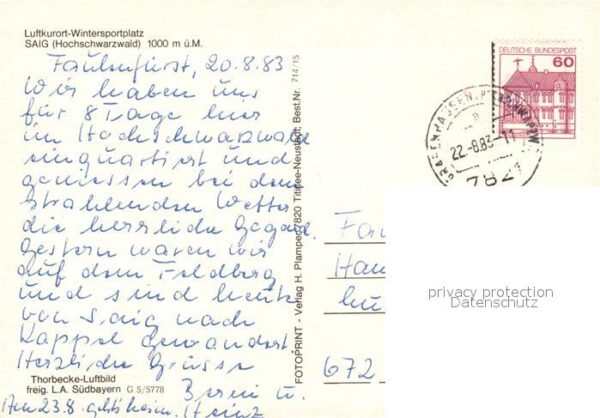 Luftkurort-Wintersportplatz
SAIG (Hochschwarzwald) 1000 m ü.M.
Faulenfürst, 20.8.83
Wir haben uns
für 8 Tage hier
im Hochschwarzwald
einquartiert und
geniessen bei dem
strahlenden Wetter
die herrliche Gegend.
Gestern waren wir
auf dem Feldberg
und sind heute
von Saig nach
Kappel gewandert
Herzliche Grüsse
Berni u.
Heinz
Am 23.8. geht's heim.
Thorbecke-Luftbild
freig. L.A. Südbayern G 5/5778
FOTOPRINT - Verlag H. Plamper, 7820 Titisee-Neustadt, Best.Nr. 714/15
DEUTSCHE BUNDESPOST
60
GRAFENHAUSEN, HOCHSCHWARZW
22.-8.83-11
7821
Fa
Han
672
privacy protection
Datenschutz